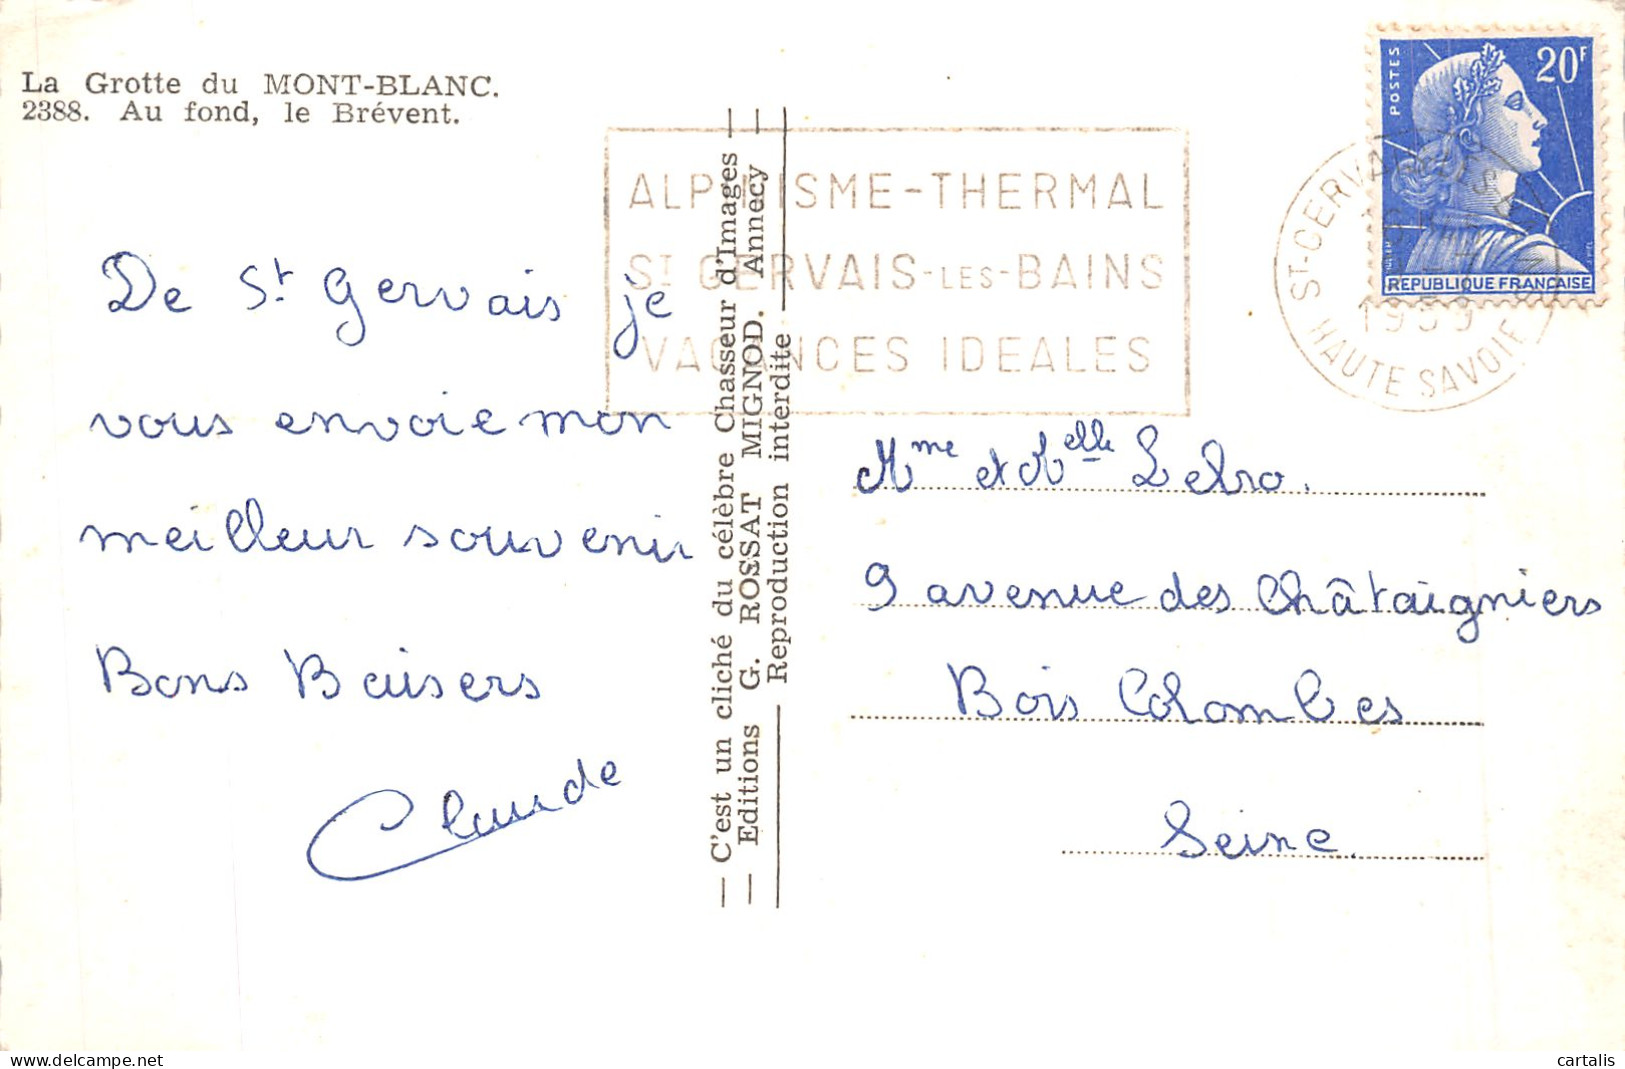 La Grotte du MONT-BLANC.
2388. Au fond, le Brévent.
De St Gervais je
vous envoie mon
meilleur souvenir
Bons Baisers
Claude
C'est un cliché du célèbre Chasseur d'Images
Editions G. ROSSAT MIGNOD. Annecy
Reproduction interdite
ALPINISME-THERMAL
ST GERVAIS-LES-BAINS
VACANCES IDEALES
POSTES
20F
REPUBLIQUE FRANÇAISE
ST-GERVAIS
1959
HAUTE SAVOIE
Mme et Melle Lebro.
9 avenue des Châtaigniers
Bois Colombes
Seine.
cartalis